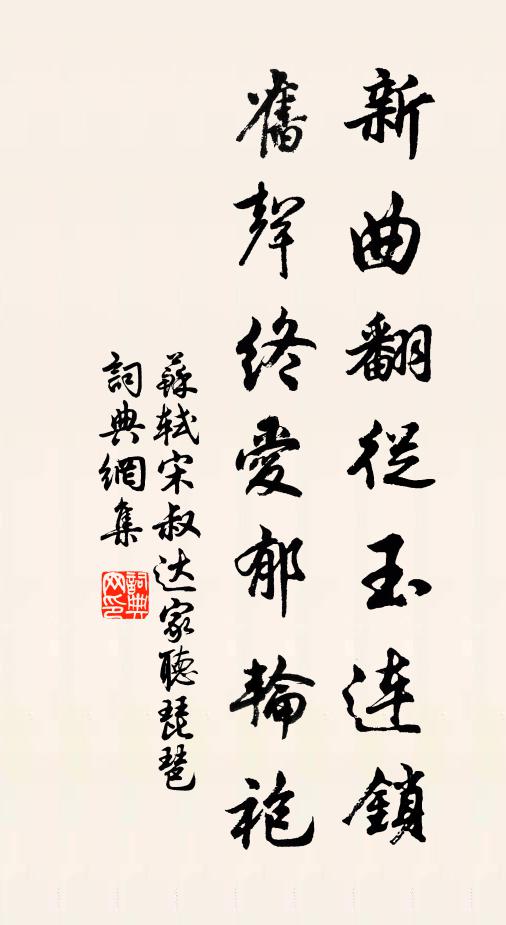 新曲翻從玉连鎖
舊聲終愛郁輪袍
蘇軾宋叔达家聽琵琶
詞典網集
詞典网印